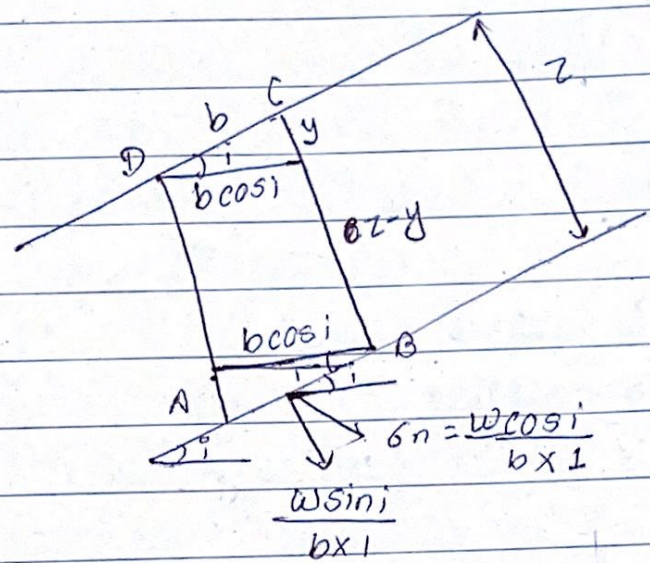 C
b
y
z
D
i
bcosi
z-y
bcosi
B
i
i
A
i
σn = wcosi / b×1
wsini / b×1